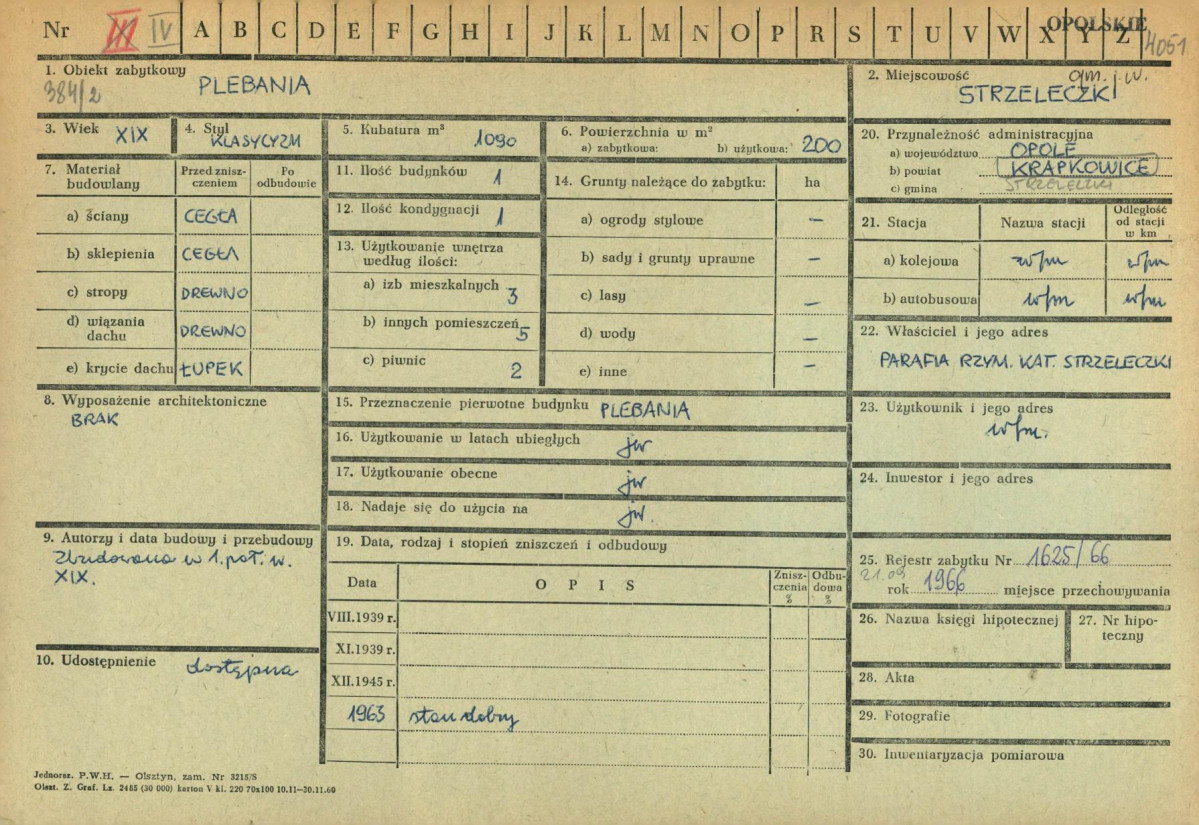 Nr III IV A B C D E F G H I J K L M N O P R S T U V W X Y Z OPOLSKIE
4051
1. Obiekt zabytkowy
384/2
PLEBANIA
2. Miejscowość gm. j.w.
STRZELECZKI
3. Wiek XIX
4. Styl
KLASYCYZM
5. Kubatura m³ 1090
6. Powierzchnia w m²
a) zabytkowa: b) użytkowa: 200
20. Przynależność administracyjna
a) województwo OPOLE
b) powiat KRAPKOWICE
c) gmina STRZELECZKI
7. Materiał budowlany
Przed zniszczeniem
Po odbudowie
a) ściany CEGŁA
b) sklepienia CEGŁA
c) stropy DREWNO
d) wiązania dachu DREWNO
e) krycie dachu ŁUPEK
11. Ilość budynków 1
12. Ilość kondygnacji 1
13. Użytkowanie wnętrza
według ilości:
a) izb mieszkalnych 3
b) innych pomieszczeń 5
c) piwnic 2
14. Grunty należące do zabytku: ha
a) ogrody stylowe –
b) sady i grunty uprawne –
c) lasy –
d) wody –
e) inne –
21. Stacja Nazwa stacji Odległość od stacji w km
a) kolejowa w/m w/m
b) autobusowa w/m w/m
22. Właściciel i jego adres
PARAFIA RZYM. KAT. STRZELECZKI
8. Wyposażenie architektoniczne
BRAK
15. Przeznaczenie pierwotne budynku PLEBANIA
16. Użytkowanie w latach ubiegłych jw
17. Użytkowanie obecne jw
18. Nadaje się do użycia na jw.
23. Użytkownik i jego adres
w/m.
24. Inwestor i jego adres
9. Autorzy i data budowy i przebudowy
Zbudowana w 1. poł. w.
XIX.
19. Data, rodzaj i stopień zniszczeń i odbudowy
Data OPIS Zniszczenia % Odbudowa %
VIII.1939 r.
XI.1939 r.
XII.1945 r.
1963 stan dobry
25. Rejestr zabytku Nr 1625/66
21.09
rok 1966 miejsce przechowywania
26. Nazwa księgi hipotecznej
27. Nr hipoteczny
10. Udostępnienie dostępna
28. Akta
29. Fotografie
30. Inwentaryzacja pomiarowa
Jednoraz. P.W.H. — Olsztyn, zam. Nr 3215/S
Olszt. Z. Graf. Lz. 2455 (30 000) karton V kl. 220 70x100 10.11—30.11.60